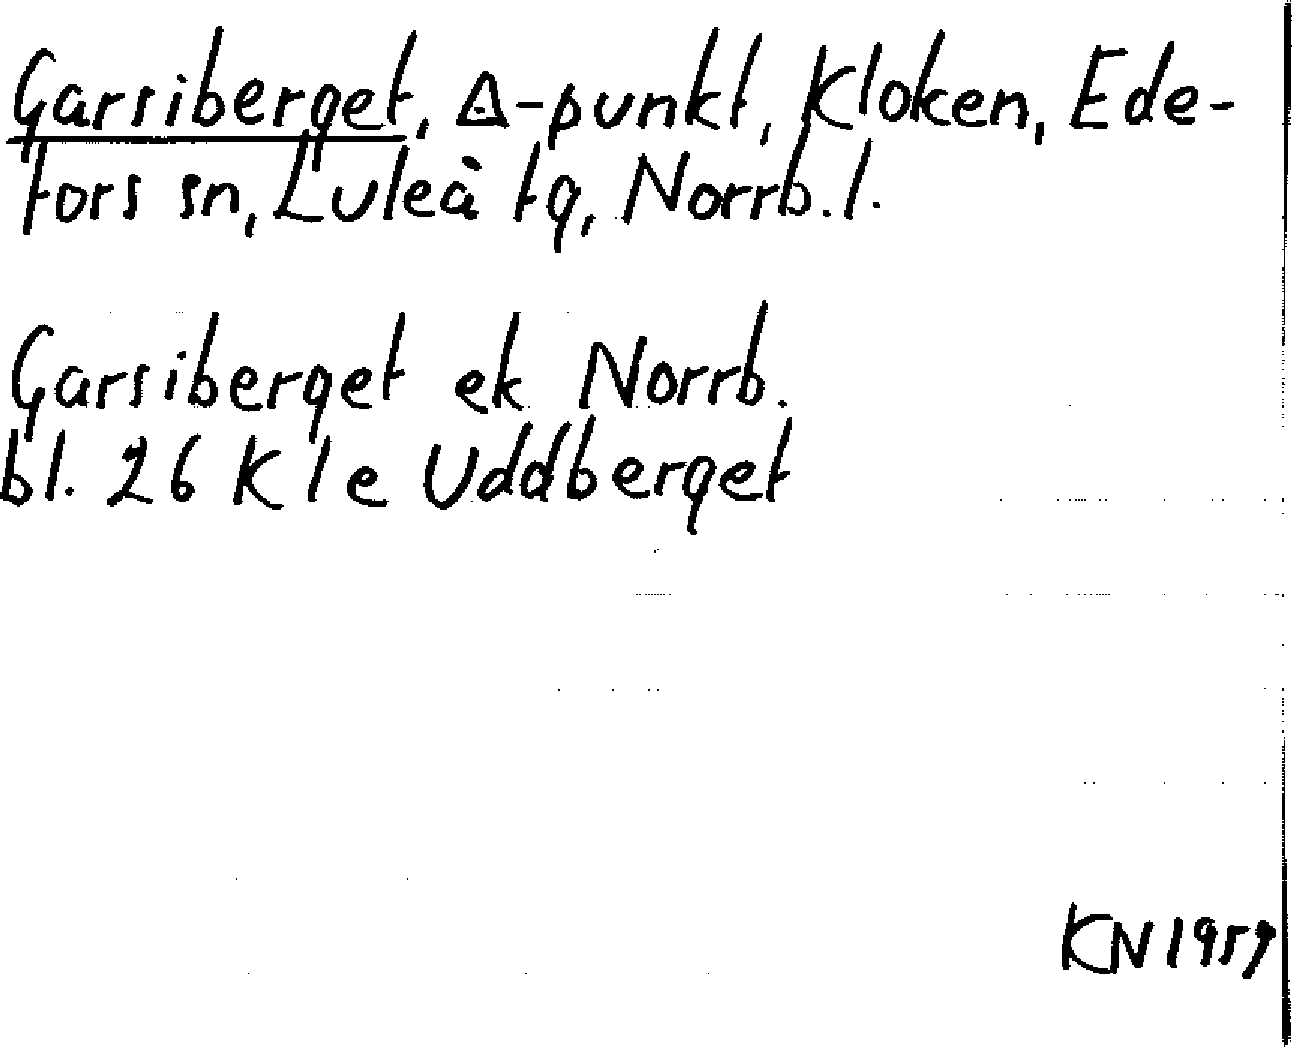 Garsiberget, ∆-punkt, Kloken, Ede-
fors sn, Luleå tg, Norrb. l.
Garsiberget ek Norrb.
bl. 26 K 1 e Uddberget
KN 1959